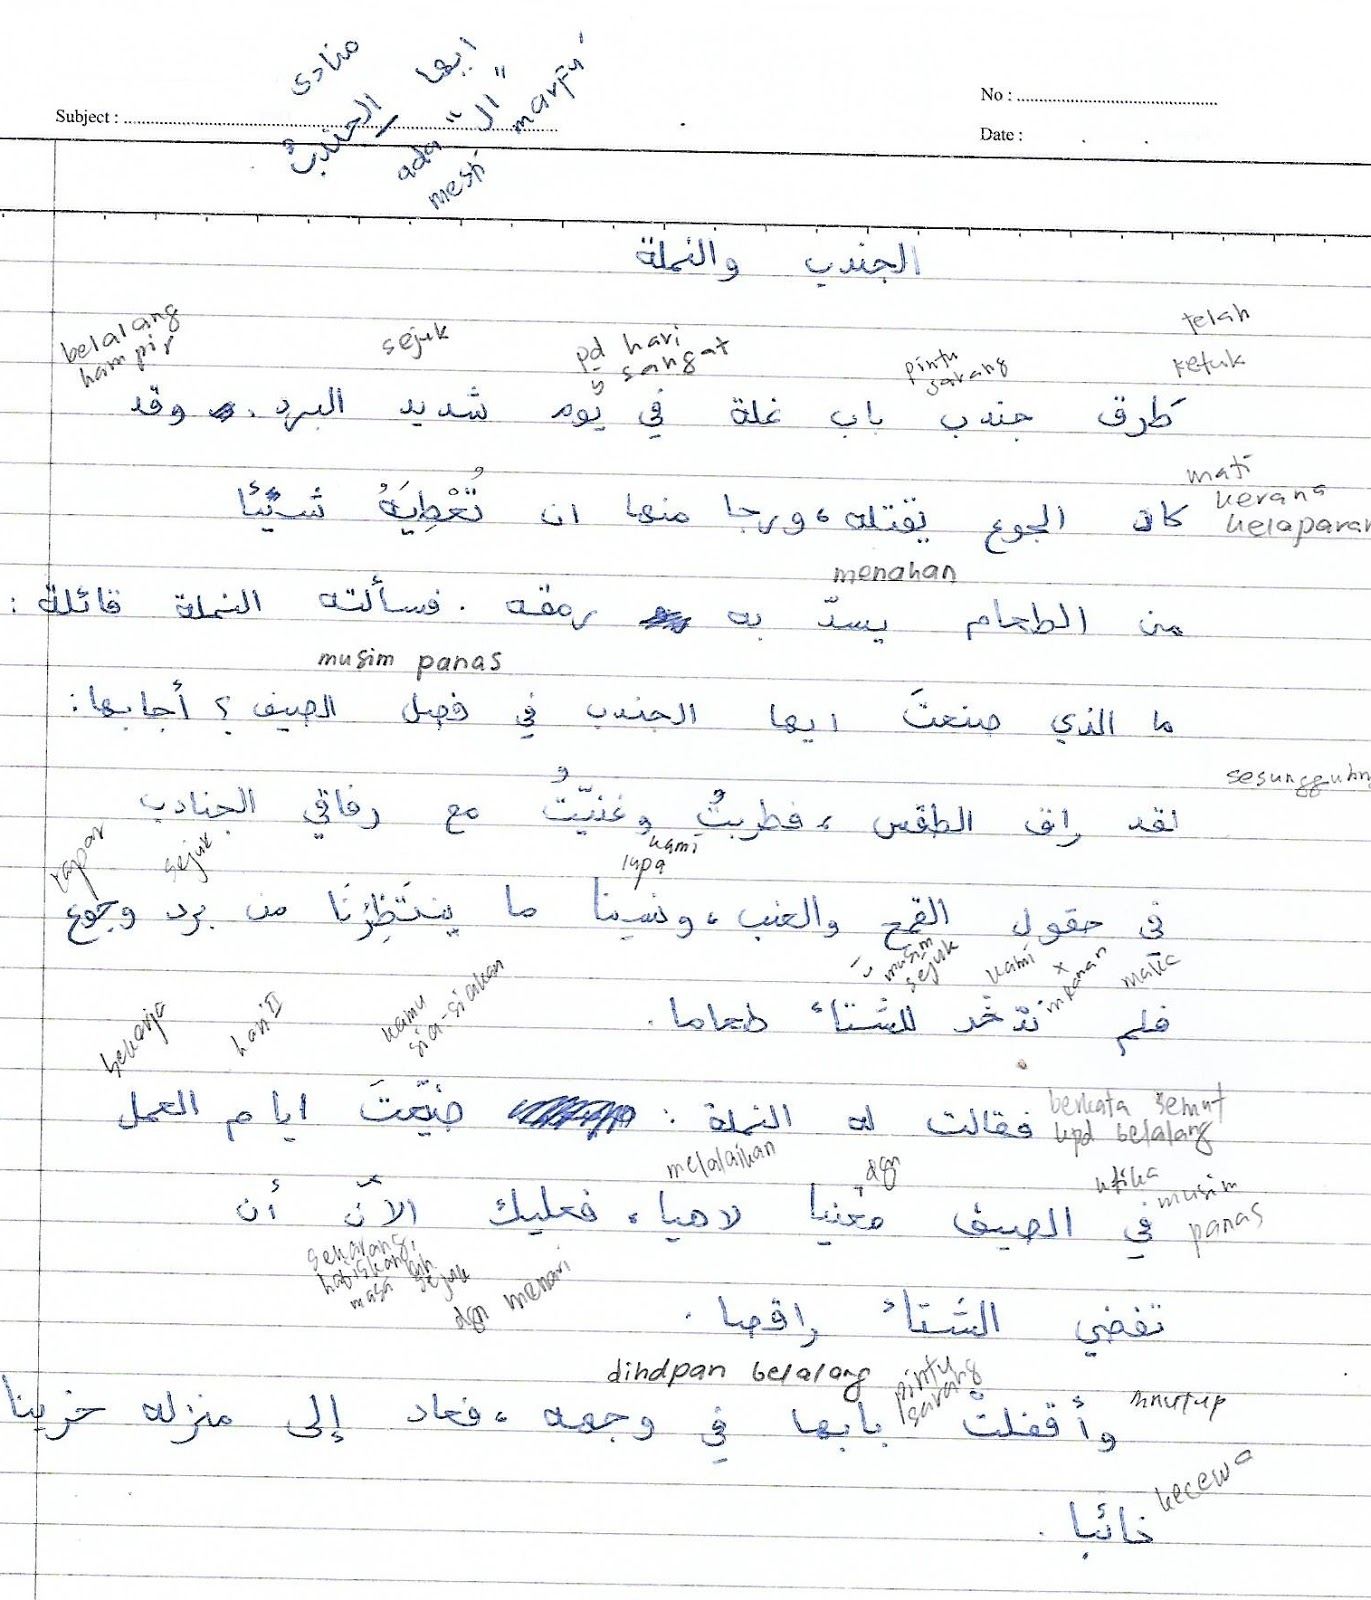 منادى
ايها الجندبُ
ada "ال"
mesti marfu'
No :
Subject :
Date :
الجندب والنملة
belalang hampir
sejuk
pd hari sangat
pintu sarang
telah ketuk
طَرق جندب باب غلة في يوم شديد البرد. وقد
mati kerana kelaparan
كاد الجوع يقتله، ورجا منها ان تُعْطِيَهُ شَيْئًا
menahan
من الطعام يسدّ به رمقه. فسألته النملة قائلة:
musim panas
ما الذي صنعتَ ايها الجندب في فصل الصيف؟ أجابها:
sesungguhn
لقد راق الطقس، فطربتُ وغنيّتُ مع رفاقي الجنادب
lapar
sejuk
kami lupa
في حقول القمح والعنب، ونسينا ما ينتَظِرُنَا من برد وجوع
musim sejuk
kami
x
mkanan
maka
فلم ندّخر للشتاء طعاما.
bekerja
hari II
kamu sia-siakan
berkata semut kpd belalang
فقالت له النملة: ضيّعتَ ايام العمل
melalaikan
dgn
ktika musim panas
في الصيف مغنيا لاهيا، فعليك الآن أن
sekarang, habiskanlah masa sejuk
dgn menari
تقضي الشتاء راقصا.
dihdpan belalang
pintu sarang
mnutup
وأقفلتْ بابها في وجهه، فعاد إلى منزله حزينا
kecewa
خائبا.